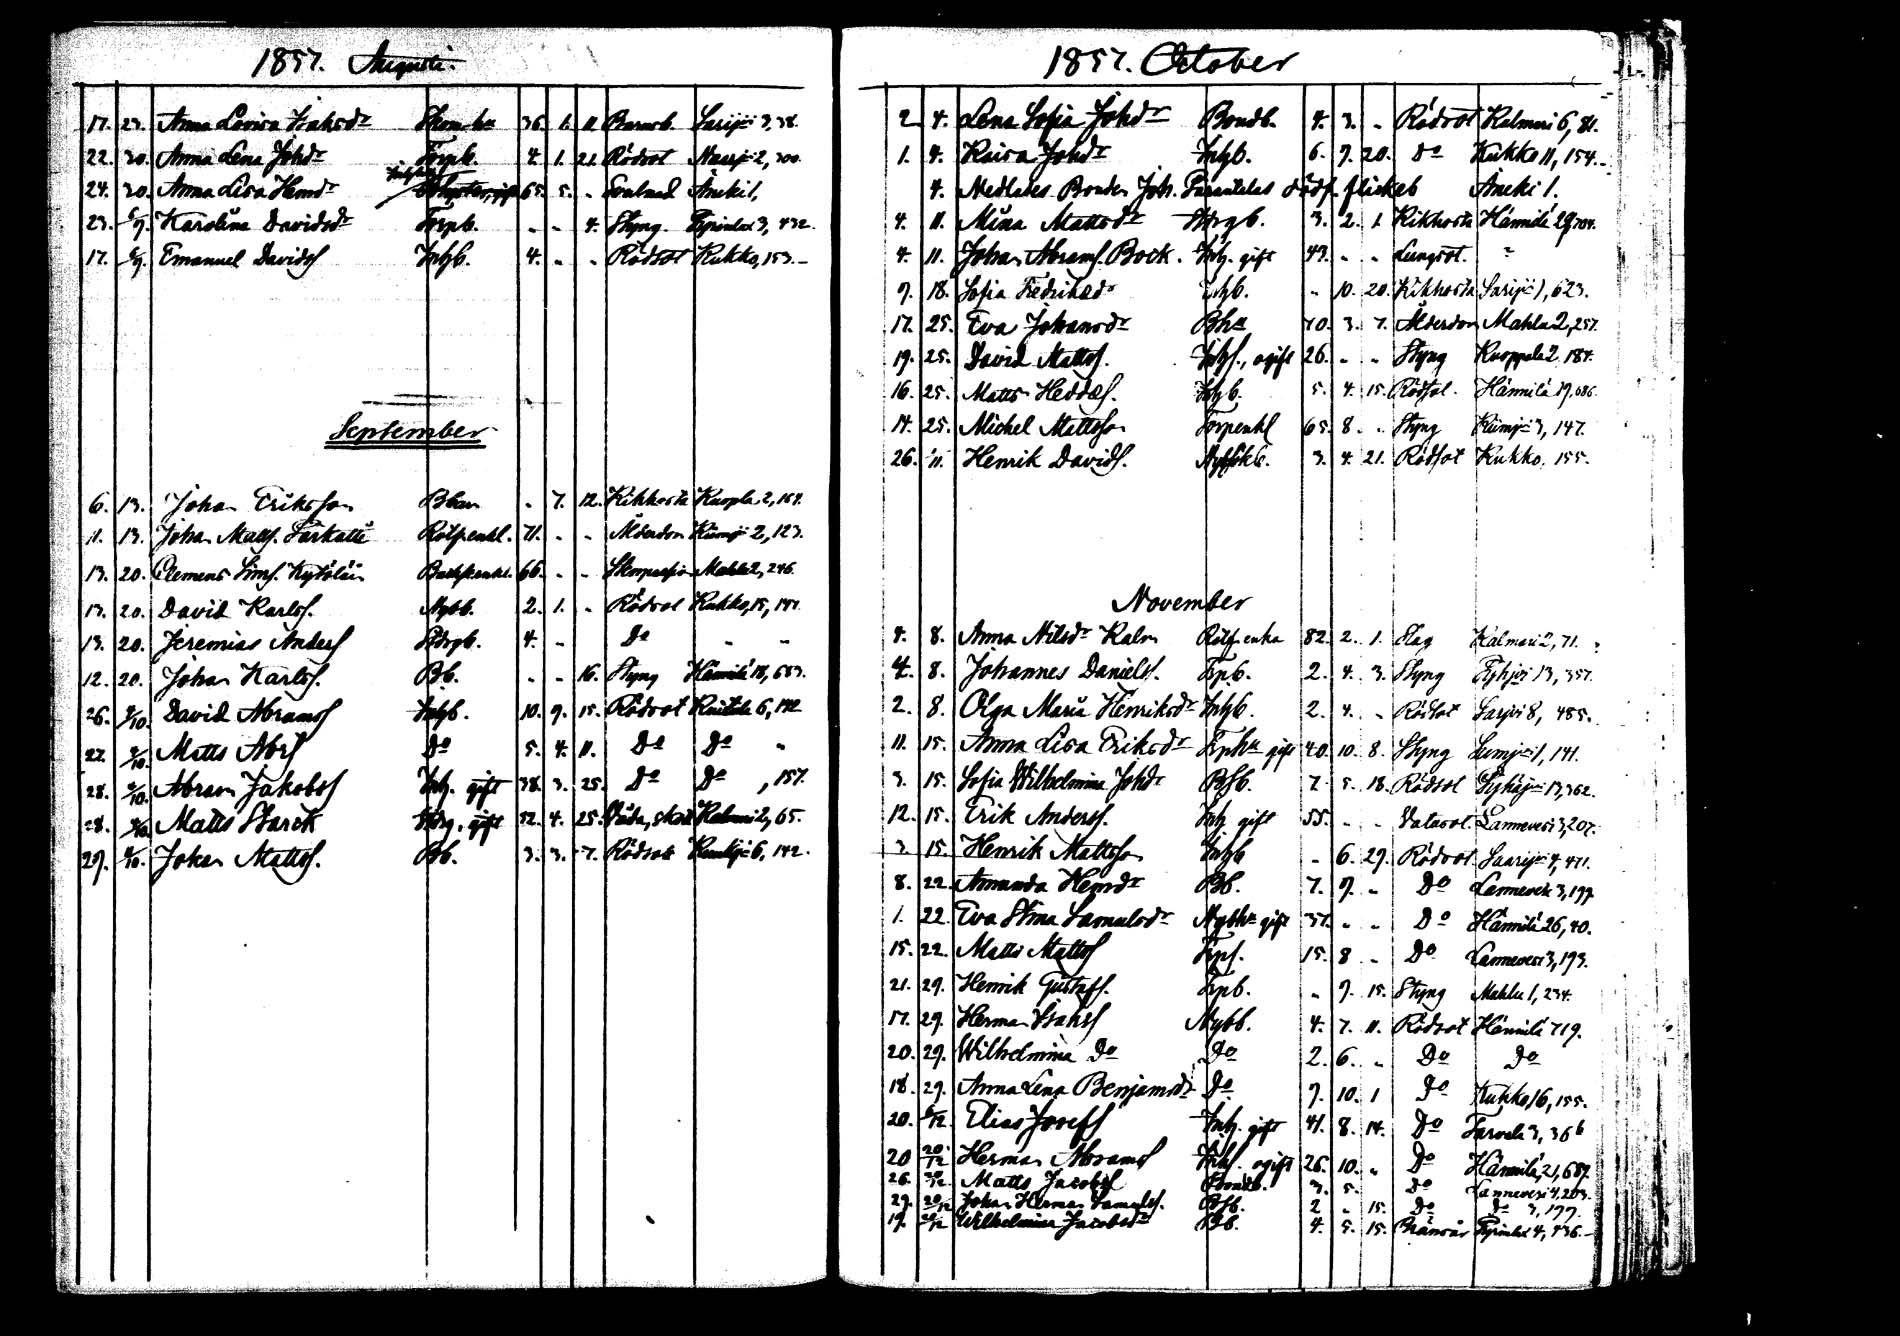 1857. Augusti.
17. 23. Anna Lovisa Isaksdr 36. 1. 11. Barnsb. Sarijvi 3, 38.
22. 30. Anna Lena Johdr Torpb. 4. 1. 21. Rödsot 2, 300.
24. 30. Anna Lisa Hemdr 65. 5. „ Soulnad Ämeki 1,
23. 6/9. Karolina Davidsdr Torpb. „ „ 4. Styng. 3, 432.
17. 6/9. Emanuel Davidsf Inhb. 4. „ „ Rödsot Kukko, 153.
September
6. 13. Johan Eriksson „ 7. 12. Kikhosta Kuopla 2, 164.
11. 13. Johan Matts. Tarkatti Rotpenkl. 71. „ „ Ålderdom Kümoj 2, 123.
13. 20. Clemens Sims. Kytölä 66. „ „ Mahlu 2, 246.
13. 20. David Karlsf. Nybb. 2. 1. „ Rödsot Kukko, 15, 147.
13. 20. Jeremias Andersf 4. „ Do „ „
12. 20. Johan Karlsf. Bb. „ „ 16. Styng Hännilä 18, 683.
26. 4/10. David Abramsf Inhb. 10. 9. 15. Rödsot 6, 142
27. 4/10. Matts Abrsf Do 5. 4. 11. Do Do „
28. 4/10. Abram Jakobsf Inh. gift 38. 3. 25. Do Do , 157.
28. 4/10. Matts Starck gift 52. 4. 25. Kalmari 2, 65.
29. 4/10. Johan Mattsf. Bb. 3. 3. 7. Rödsot 6, 142.
1857. October
2. 4. Lena Sofia Johdr Bondb. 4. 3. „ Rödsot Kalmari 6, 81.
1. 4. Kaisa Johdr Inhb. 6. 9. 20. Do Kukko 11, 154.
4. Nedlades Bonden Joh. Parantelas dödf. flickeb Ämeki 1.
4. 11. Mina Mattsdr 3. 2. 1. Kikhosta Hännilä 29, 704.
4. 11. Johan Abrams. Bock. Inh. gift 43. „ „ Lungsot. „
9. 18. Sofia Fredriksdr Inhb. „ 10. 20. Kikhosta Sarijvi 1, 623.
17. 25. Eva Johansdr Bha 70. 3. 7. Ålderdom Mahlu 2, 257.
19. 25. David Mattsf. Inhf., ogift 26. „ „ Styng Kuoppala 2, 184.
16. 25. Matts Heddasf. Inhb. 5. 4. 15. Rödsot. Hännilä 19, 686.
14. 25. Michel Mattsson Torpenkl 65. 8. „ Styng Kümoj 3, 147.
26. Henrik Davidsf. 3. 4. 21. Rödsot Kukko, 155.
November
4. 8. Anna Nilsdr Kalm Rotp.enka 82. 2. 1. Slag Kalmari 2, 71.
4. 8. Johannes Danielsf. Trpb. 2. 4. 3. Styng Pyhjvi 13, 357.
2. 8. Olga Maria Henriksdr Inhb. 2. 4. „ Rödsot Sarjvi 8, 485.
11. 15. Anna Lisa Eriksdr Trpha gift 40. 10. 8. Styng Lumpj 1, 141.
3. 15. Sofia Wilhelmina Johdr Bsb. 7. 5. 18. Rödsot 13, 362.
12. 15. Erik Andersf. Inh. gift 55. „ „ Vatasot. Lannevesi 3, 207.
3. 15. Henrik Mattsson Inhb „ 6. 29. Rödsot. Saarijvi 4, 471.
8. 22. Amanda Hemdr Bb. 7. 9. „ Do Lannevesi 3, 199.
1. 22. Eva Stina Samuelsdr Nybha gift 37. „ „ Do Hännilä 26, 40.
15. 22. Matts Mattsf Trpf. 15. 8 „ Do Lannevesi 3, 193.
21. 29. Henrik Gustafsf. Trpb. „ 9. 15. Styng Mahlu 1, 234.
17. 29. Herman Isaksf Nybb. 4. 7. 11. Rödsot Hännilä 719.
20. 29. Wilhelmina Do Do 2. 6. „ Do Do
18. 29. Anna Lena Benjamsdr Do 9. 10. 1 Do Kukko 16, 155.
20. 6/12 Elias Josefsf Inh. gift 41. 8. 14. Do Tarvala 3, 366
20 20/12 Herman Abramsf Inhf. ogift 26. 10. „ Do Hännilä, 21, 687.
26. 20/12 Matts Jacobsf Bondb. 3. 5. Do Lannevesi 4, 203.
29. 20/12 Johan Herman Samuelsf. Bsb. 2 „ 15. Do Do 3, 199.
19. 20/12 Wilhelmina Jacobsdr Bb. 4. 5. 15. Brånsår 4, 436.